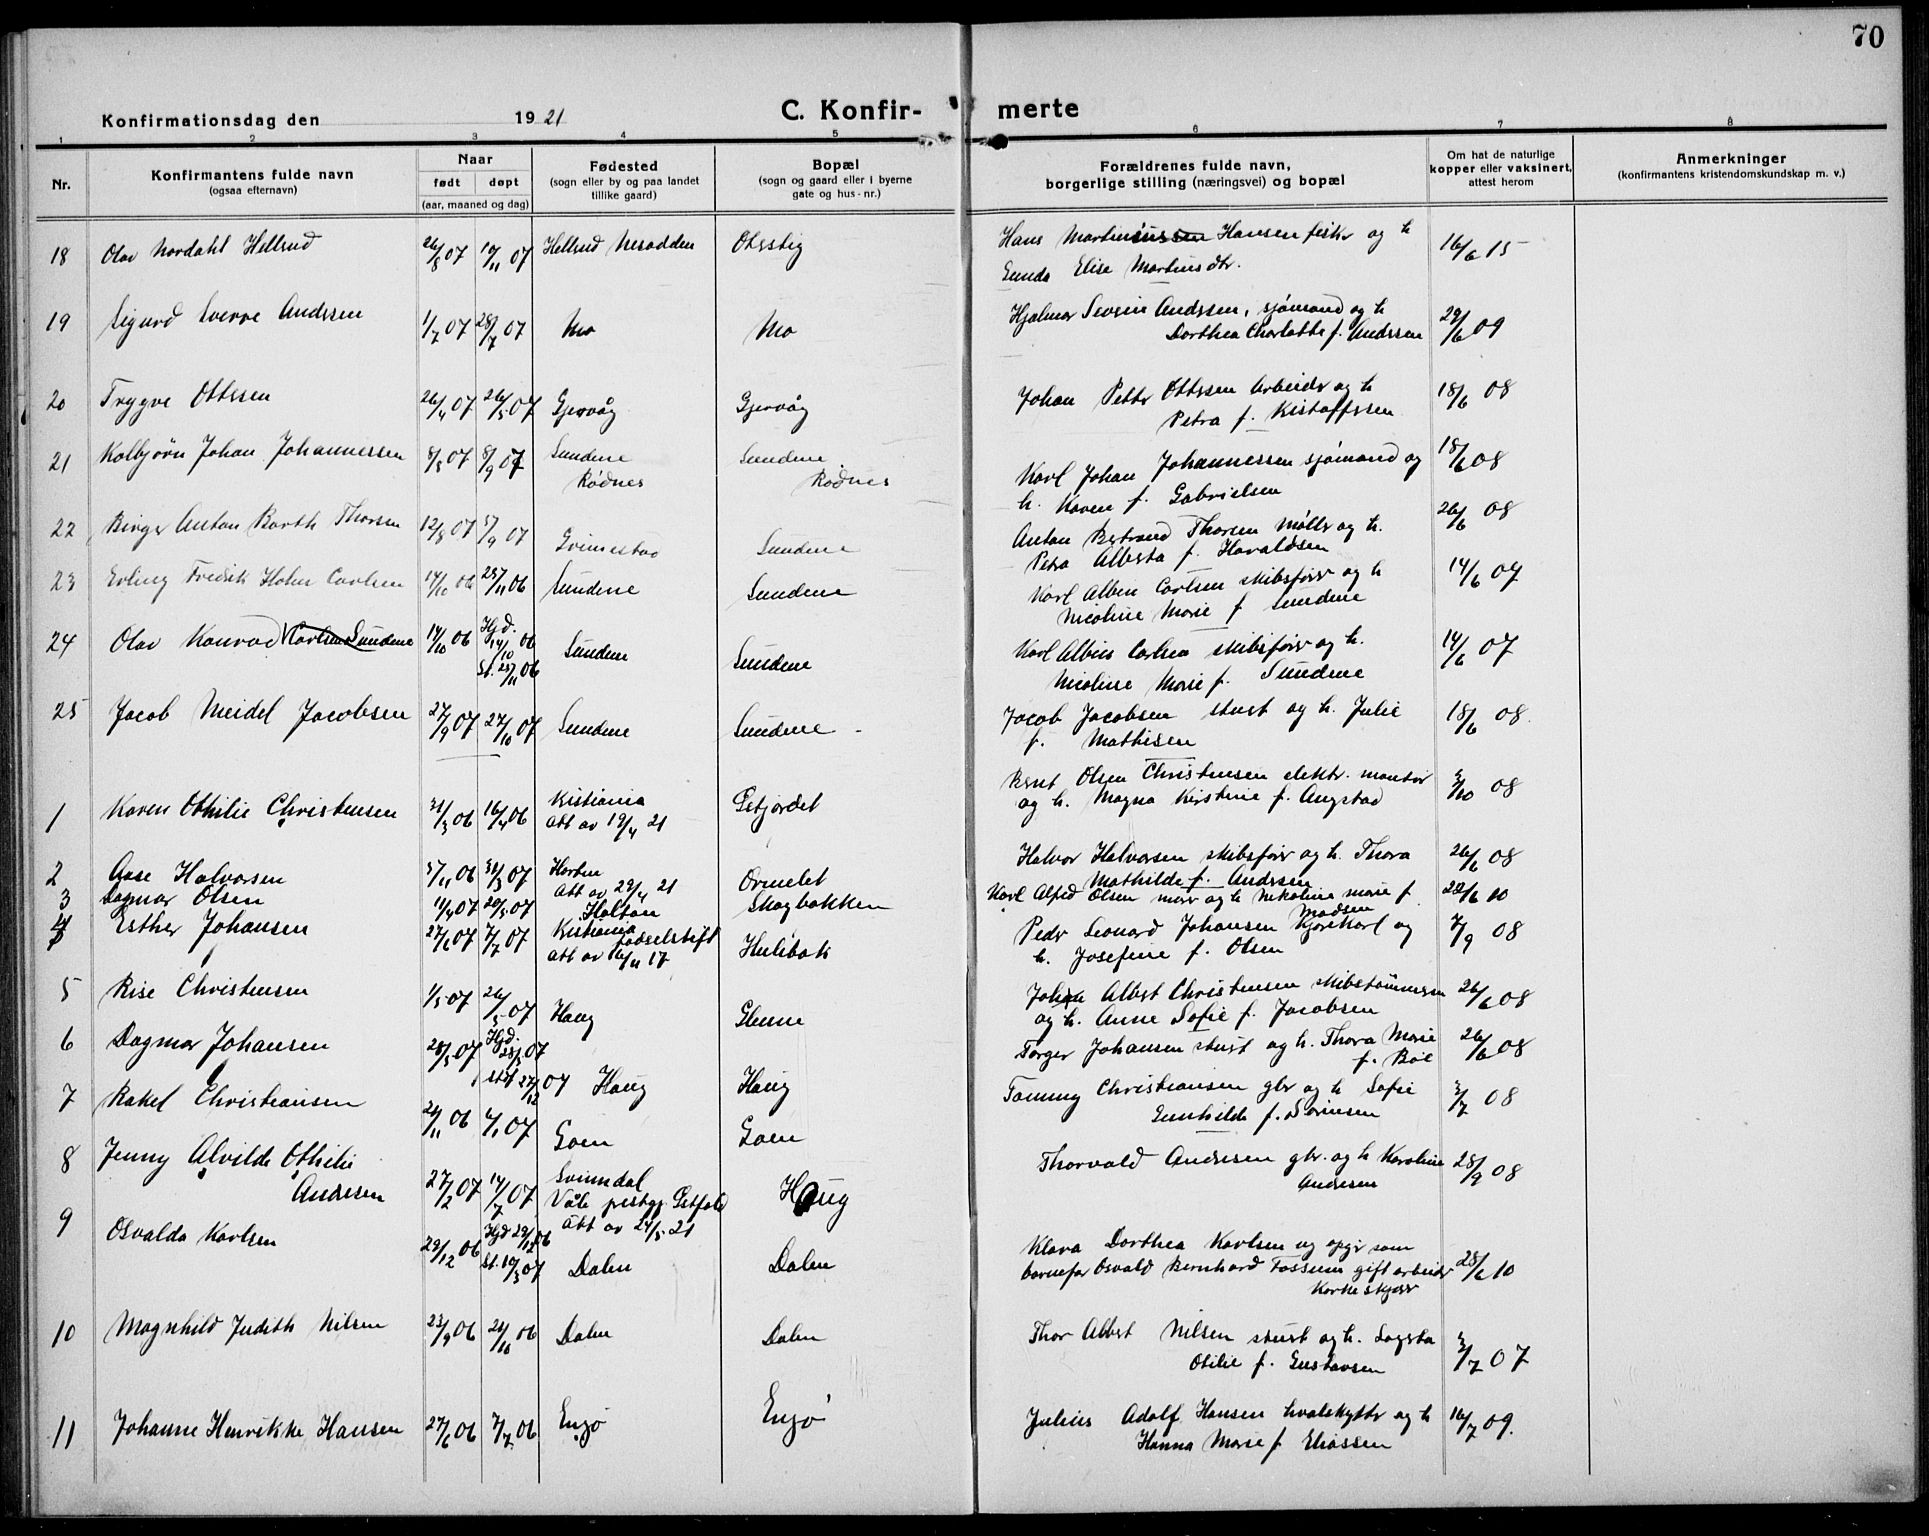 70
Konfirmationsdag den 1921 C. Konfir- merte
1 2 3 4 5 6 7 8
Nr. Konfirmantens fulde navn (ogsaa efternavn) Naar født døpt (aar, maaned og dag) Fødested (sogn eller by og paa landet tillike gaard) Bopæl (sogn og gaard eller i byerne gate og hus-nr.) Forældrenes fulde navn, borgerlige stilling (næringsvei) og bopæl Om hat de naturlige kopper eller vaksinert, attest herom Anmerkninger (konfirmantens kristendomskundskap m. v.)
18 Olav Nordahl Hellerud 26/8 07 10/11 07 Hellerud Nesodden Hans Hansen fisker og h 16/6 15
Elise Martinsdtr.
19 Sigurd Sverre Andersen 1/7 07 28/7 07 Mo Mo Hjalmar Severin Andersen, sjömand og h 29/6 09
Dorthea Charlotte f. Andersen
20 Trygve Ottesen 26/4 07 26/5 07 Gjervåg Gjervåg Johan Petter Ottesen arbeider og h 18/6 08
Petra f. Kristoffersen
21 Kolbjörn Johan Johannessen 8/8 07 8/9 07 Sundene Rødnes Sundene Rødnes Karl Johan Johannessen sjömand og 18/6 08
h. Karen f. Gabrielsen
22 Birger Anton Barth Thorsen 12/8 07 5/9 07 Grimestad Sundene Anton Bertrand Thorsen Möller og h. 26/6 08
Petra Alberta f. Haraldsen
23 Erling Fredrik Holm Carlsen 14/10 06 25/11 06 Sundene Sundene Karl Albin Carlsen skibsförer og h 14/6 07
Nicoline Marie f Sundene
24 Olav Konrad Carlsen Sundene 14/10 06 Hjd. 14/10 06 St. 25/11 06 Sundene Sundene Karl Albin Carlsen skibsförer og h. 14/6 07
Nicoline Marie f. Sundene
25 Jacob Meidel Jacobsen 27/9 07 27/10 07 Sundene Sundene Jacob Jacobsen stuert og h. Julie 18/6 08
f. Mathisen
1 Karen Othilie Christensen 31/3 06 16/4 06 Kristiania att av 19/4 21 Getjordet Bent Olsen Christensen elektr. montör 3/10 08
og h. Magna Kirstine f. Angstad
2 Aase Halvorsen 5/11 06 31/3 07 Horten Att av 29/4 21 Ormelet Halvor Halvorsen skibsförer og h. Thora 26/6 08
Mathilde f. Andersen
3 Dagmar Olsen 11/4 07 20/5 07 Holtan Skogbakken Karl Alfred Olsen murer og h Nikoline Marie f. Madsen 22/6 10
4 Esther Johansen 27/6 07 7/7 07 Kristiania fødselstift att av 16/11 17 Hulebak Peder Leonard Johansen Kjørekarl og 7/9 08
h. Josefine f. Olsen
5 Rise Christensen 1/5 07 26/5 07 Haug Glenne Johan Albert Christensen skibstömmerm 26/6 08
og h. Anne Sofie f. Jacobsen
6 Dagmar Johansen 28/5 07 Hjd. 28/5 07 stdf 27/12 07 Haug Haug Torger Johansen stuert og h. Thora Marie 26/6 08
f. Böe
7 Rakel Christiansen 24/11 06 4/1 07 Goen Goen Tommy Christiansen gbr og h Sofie 3/7 08
Gunhilde f. Sörensen
8 Jenny Alvilde Othilie 27/2 07 14/7 07 Svinndal Våle prestgj. Jethold att av 24/5 21 Haug Thorvald Andersen gbr. og h Karoline 28/9 08
Andersen Andersen
9 Osvalda Karlsen 29/12 06 Hjd 29/12 06 St. 10/3 07 Dalen Dalen Klara Dorthea Karlsen ug opgir som 28/6 10
barnefar Osvald Bernhard Fossum gift arbeider
10 Magnhild Judith Nilsen 23/9 06 21/10 06 Dalen Dalen Thor Albert Nilsen stuert og h. Dagsta 3/7 07
Otilie f. Gustavsen
11 Johanne Henrikke Hansen 27/6 06 7/7 06 Engö Engö Julius Adolf Hansen hvalskytter og h 16/7 09.
Hanna Marie f. Eliassen